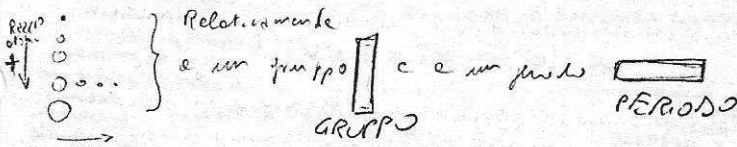 Raggio
Relativamente
a un gruppo e a un periodo
GRUPPO
PERIODO